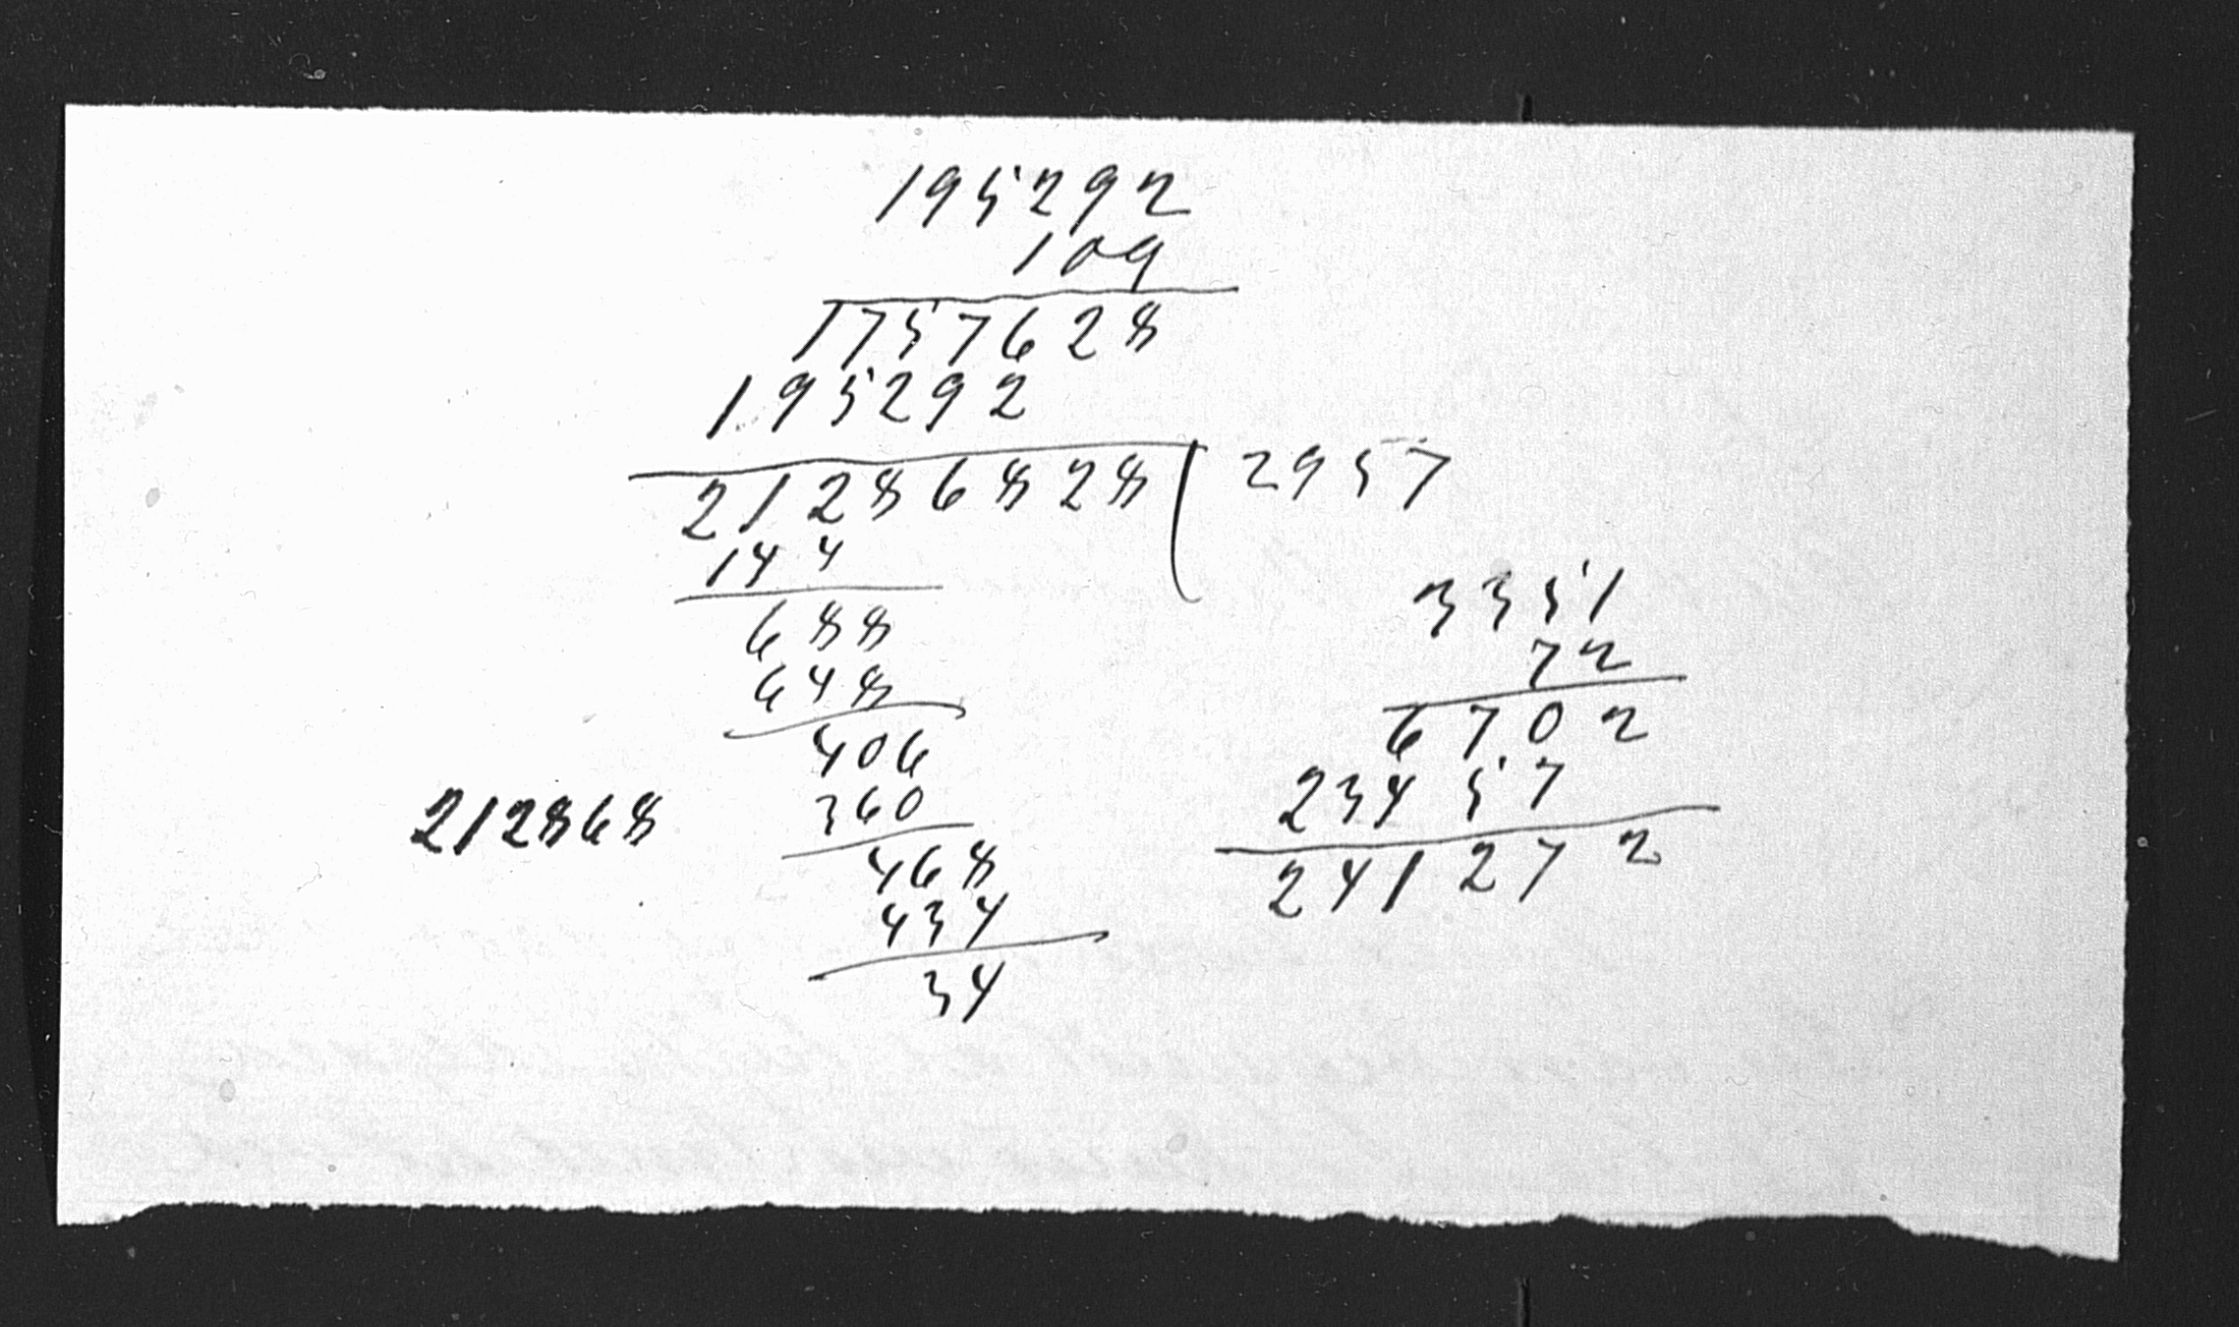 195292
109
1757628
195292
21286828 ( 2957
144
688
648
406
360
468
434
34
212868
3351
72
6702
23457
241272